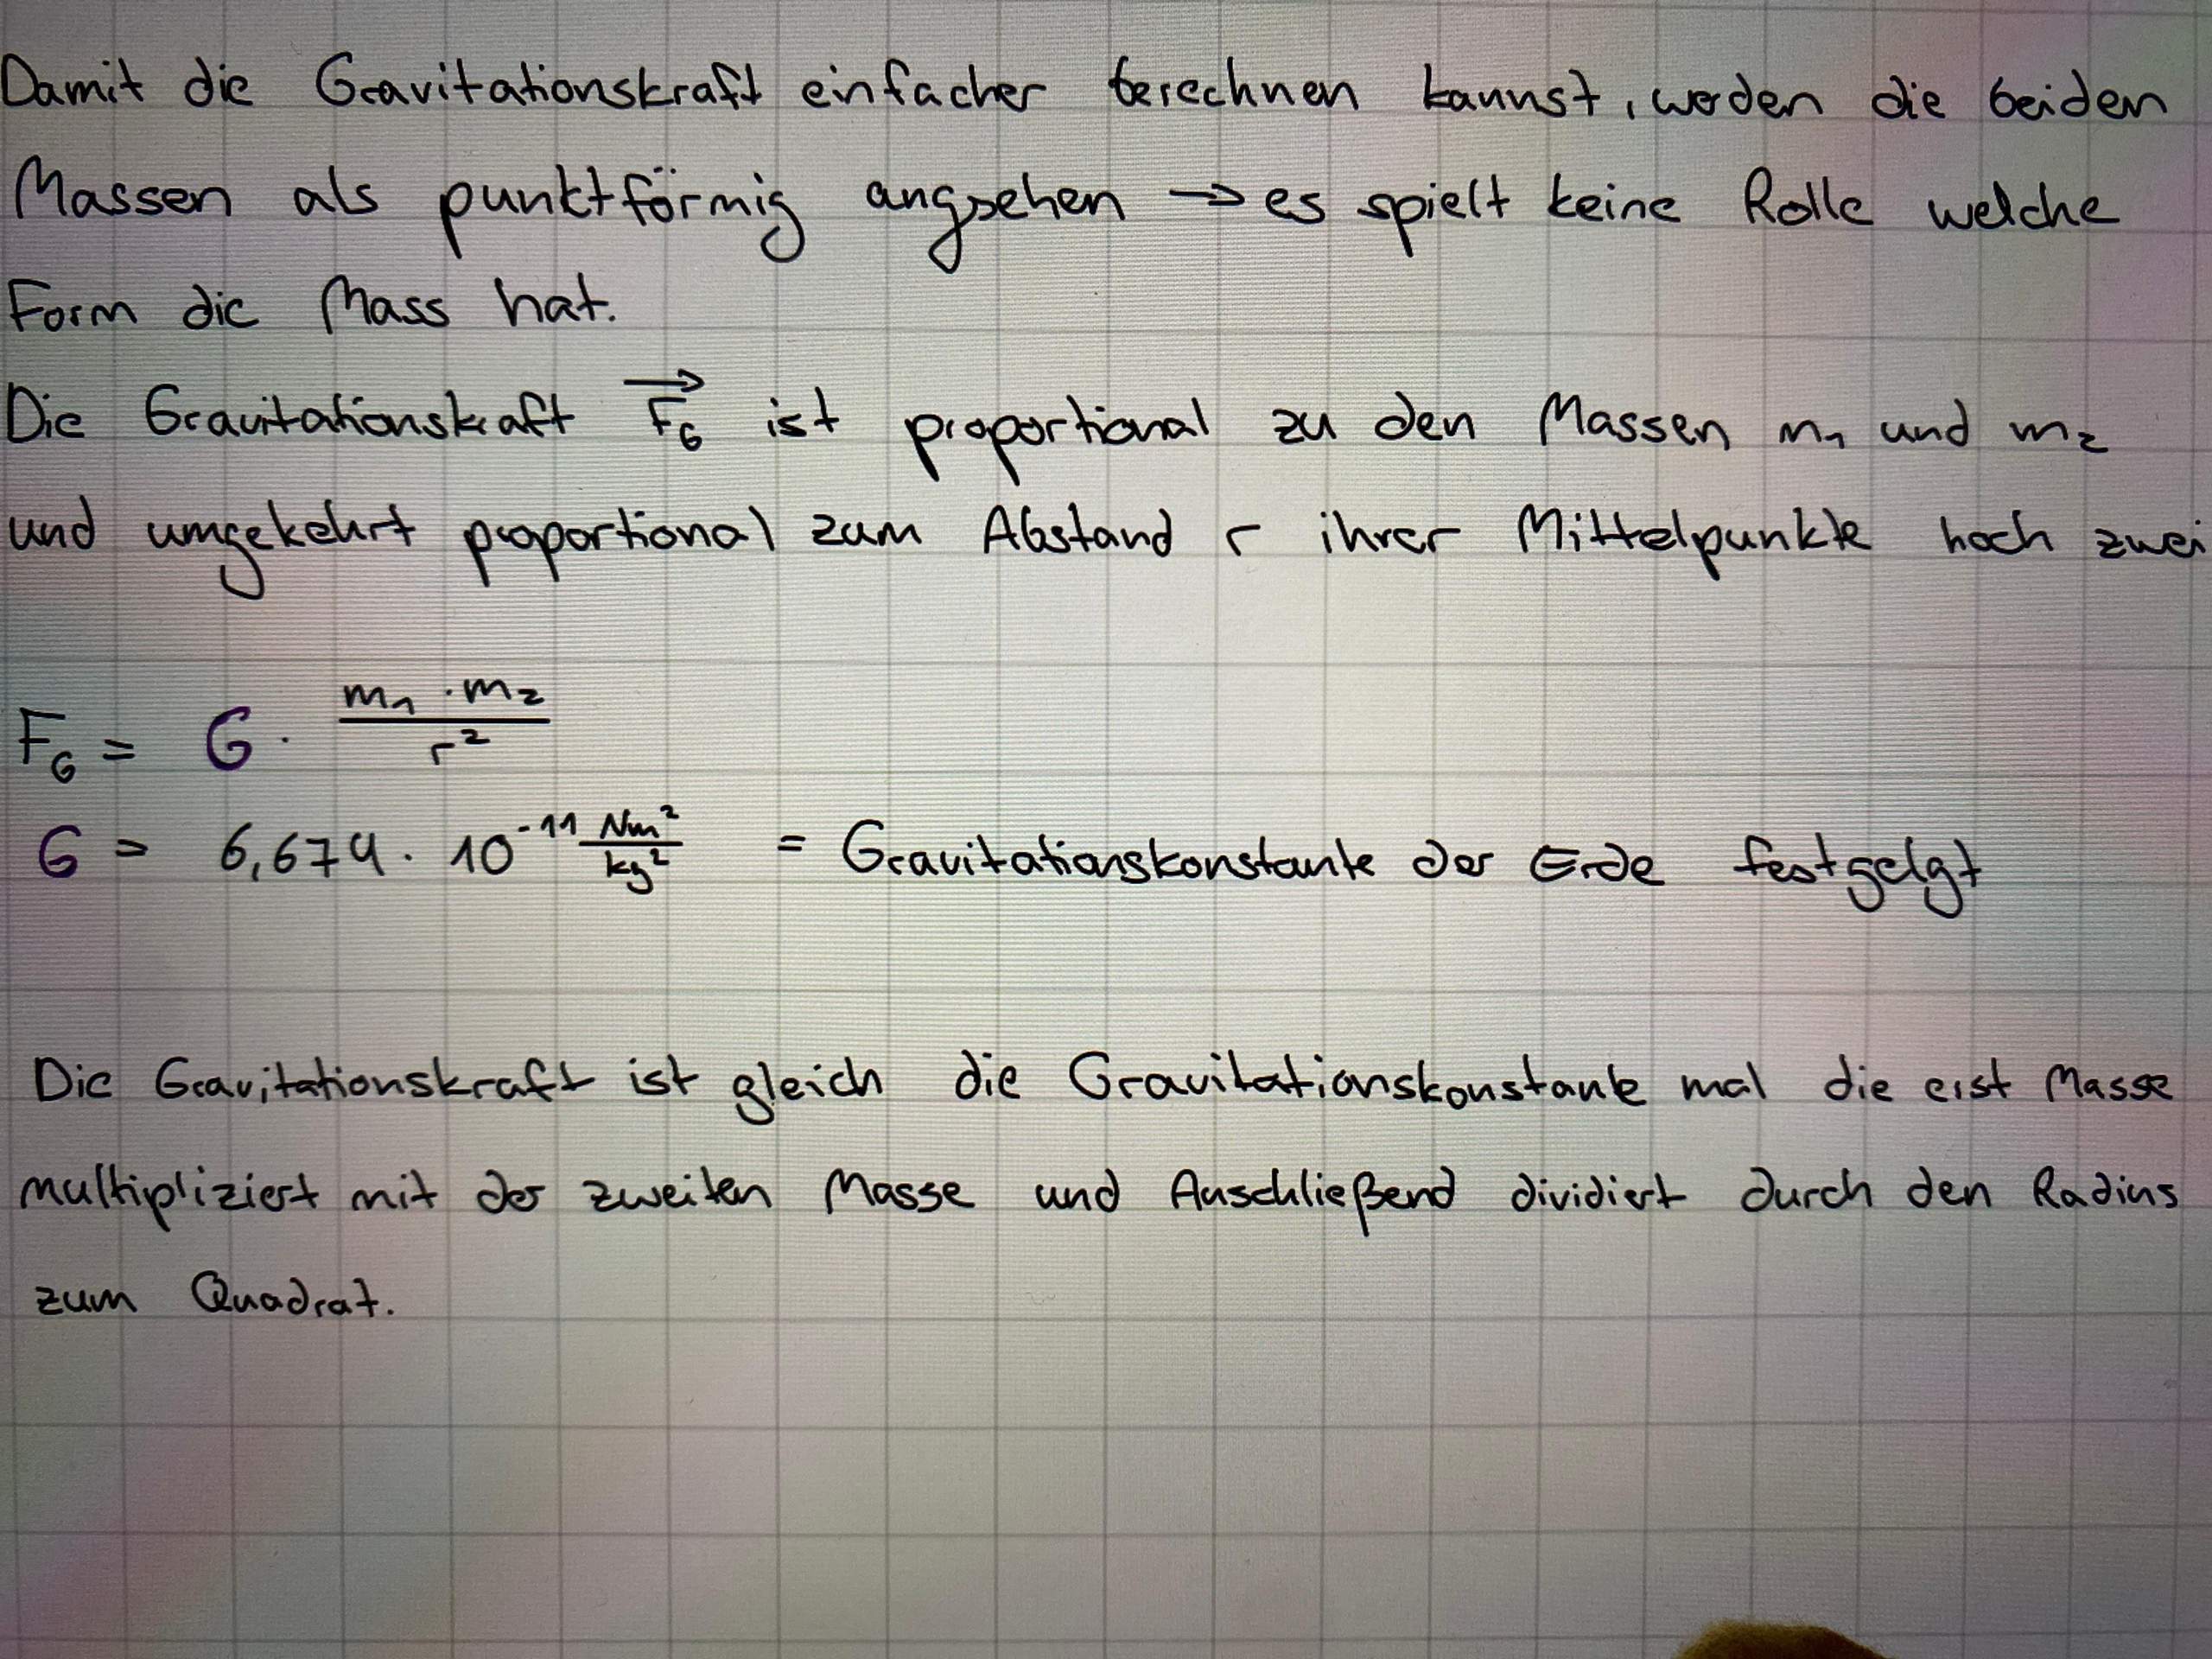 Damit die Gravitationskraft einfacher berechnen kannst, werden die beiden
Massen als punktförmig angsehen → es spielt keine Rolle welche
Form die Mass hat.
Die Gravitationskraft $\overrightarrow{F_G}$ ist proportional zu den Massen m₁ und m₂
und umgekehrt proportional zum Abstand r ihrer Mittelpunkte hoch zwei
$F_G = G \cdot \frac{m_1 \cdot m_2}{r^2}$
$G = 6,674 \cdot 10^{-11} \frac{Nm^2}{kg^2}$ = Gravitationskonstante der Erde festgelgt
Die Gravitationskraft ist gleich die Gravitationskonstante mal die erst Masse
multipliziert mit der zweiten Masse und Anschließend dividiert durch den Radius
zum Quadrat.